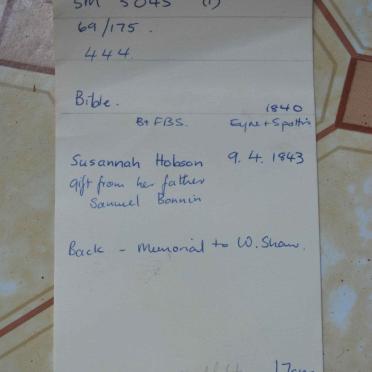 SM 5045 (1)
69/175.
444.
Bible. 1840
B+FBS. Eyre + Spottis
Susannah Hobson 9. 4. 1843
gift from her father
Samuel Bonnin
Back - Memorial to W. Shaw.